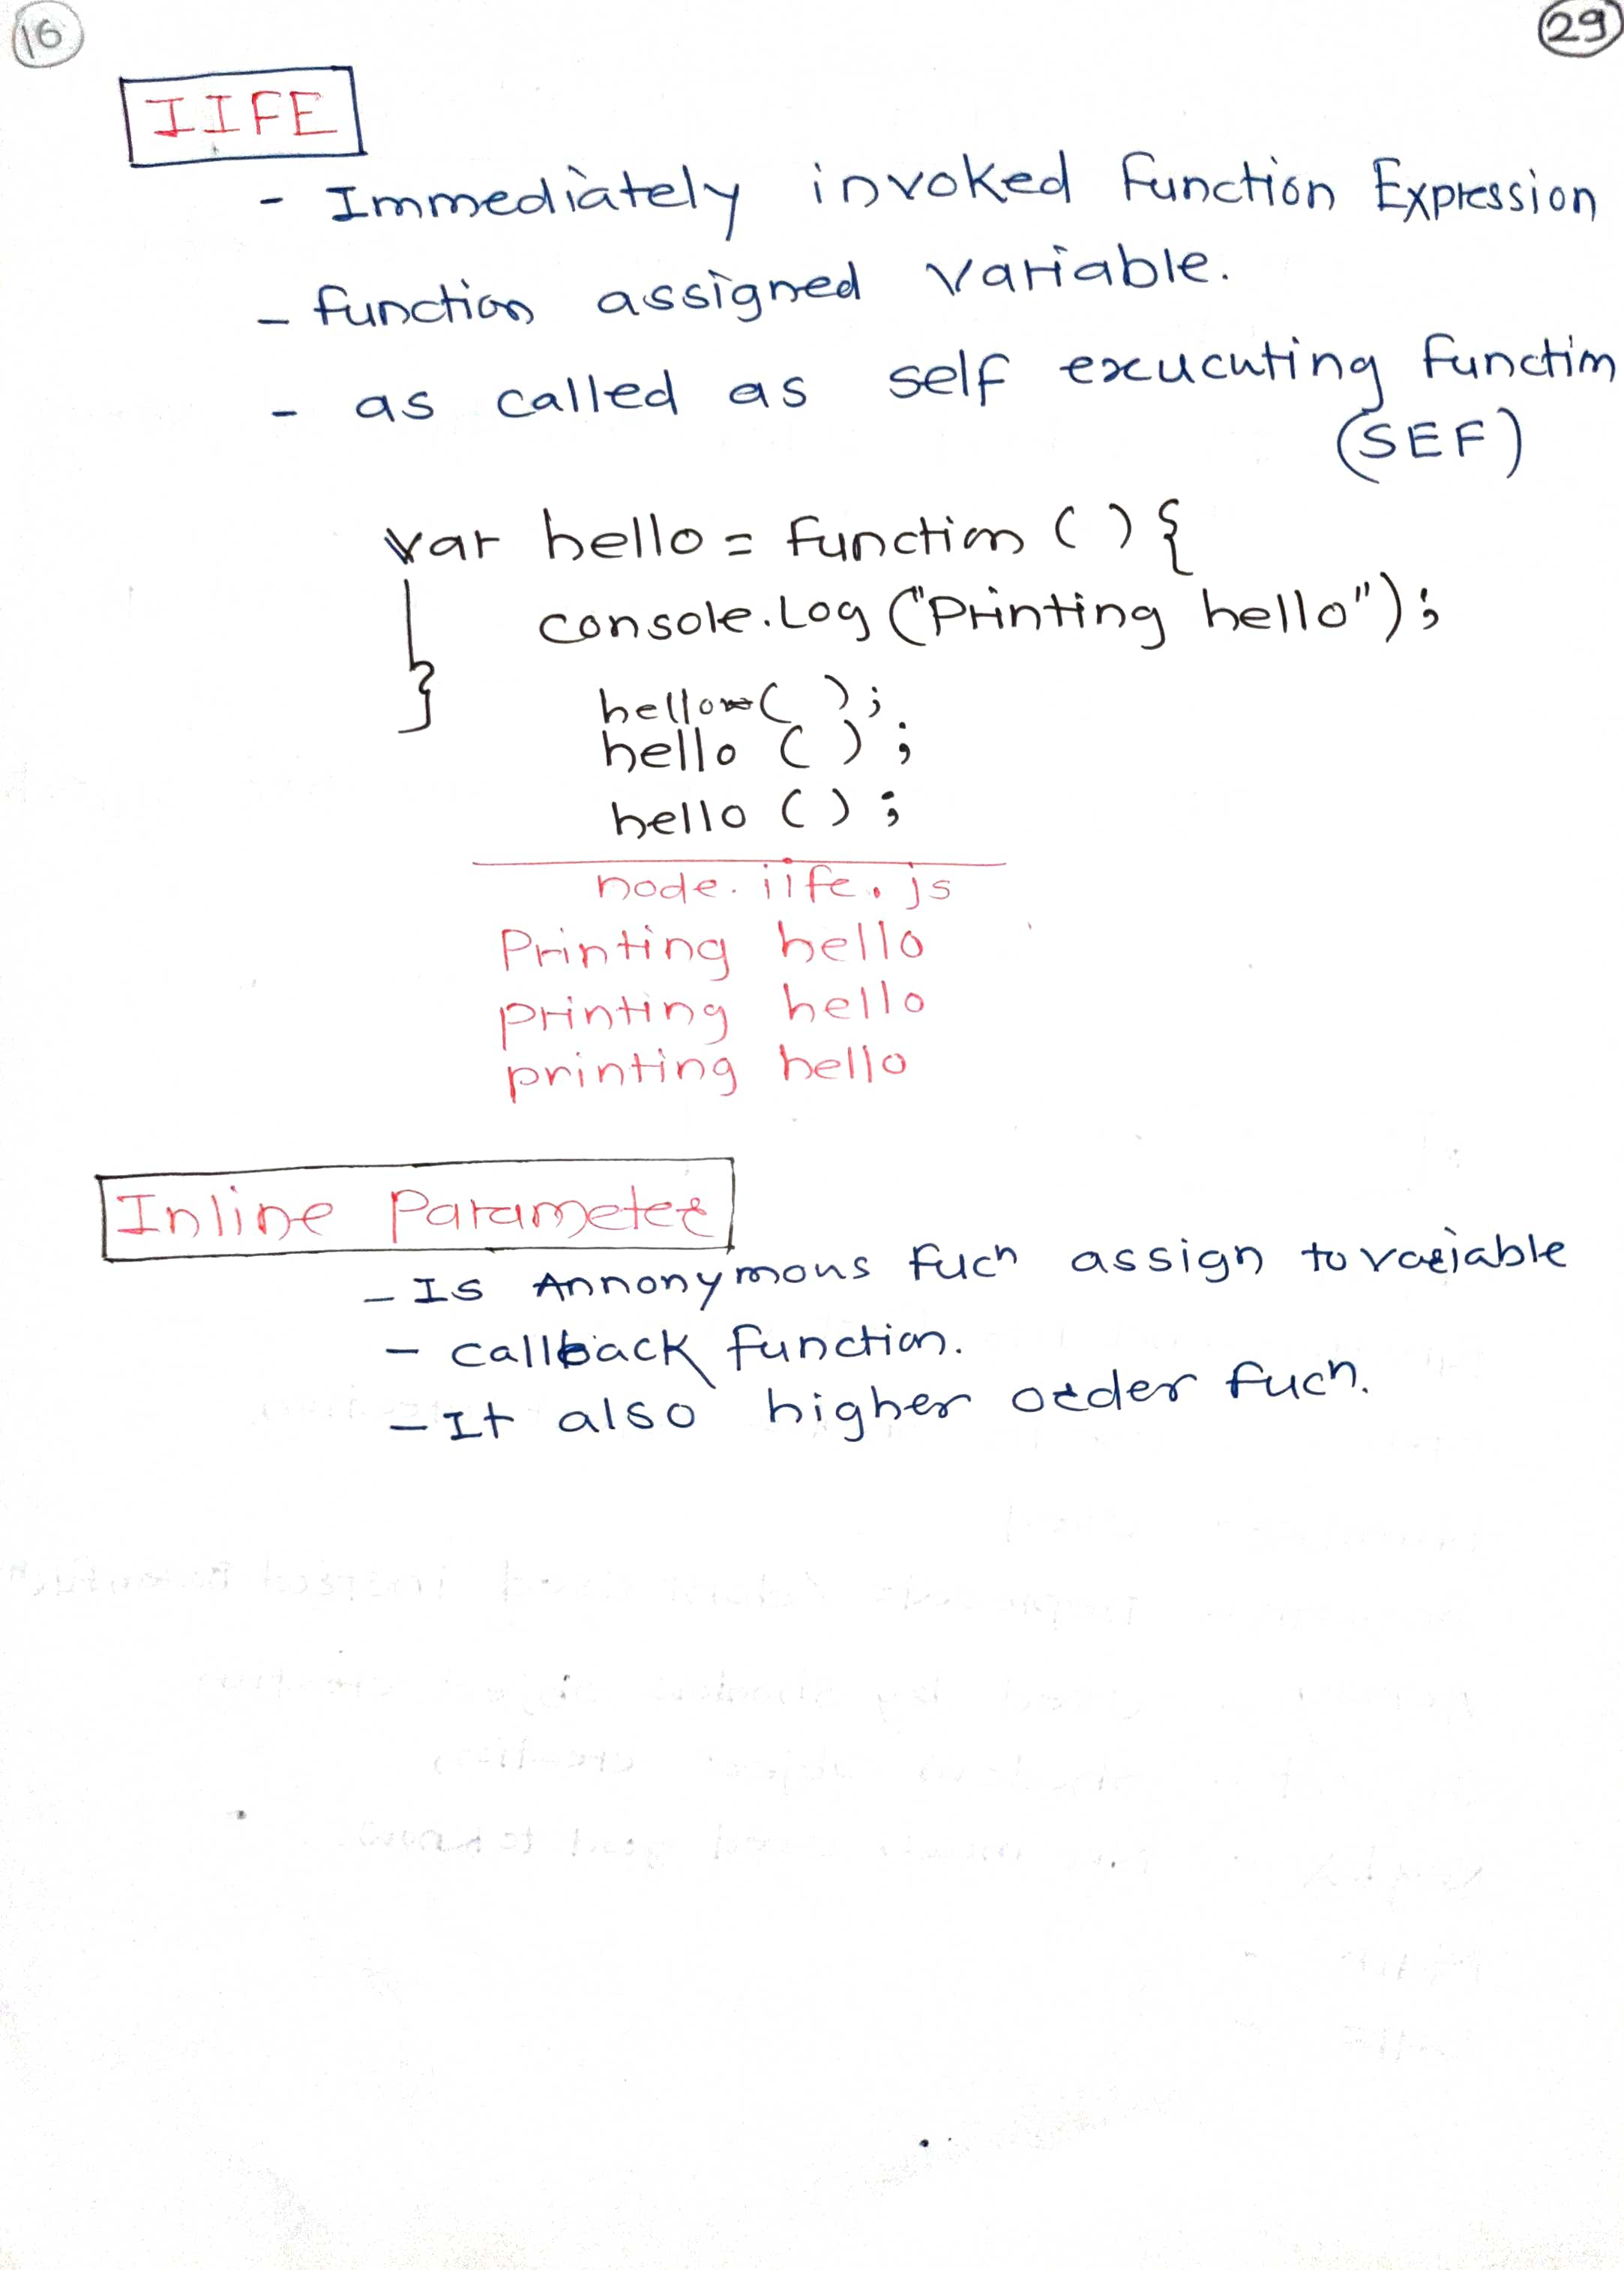 16
29
IIFE
- Immediately invoked Function Expression
- function assigned variable.
- as called as self excucuting function
(SEF)
var hello = function () {
console.Log ("Printing hello");
}
hello ( );
hello ( );
hello ();
node. iife. js
Printing hello
printing hello
printing hello
Inline Parameter
- Is Annonymous fucn assign to variable
- callback function.
- It also higher order fucn.